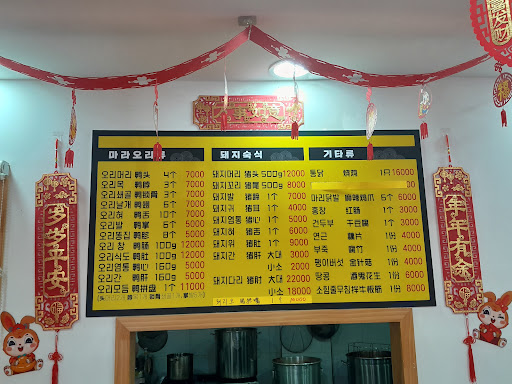 마라오리류
오리머리 鸭头 4个 7000
오리목 鸭脖 3个 7000
오리쇄골 鸭锁骨 3个 7000
오리날개 鸭翅 6个 7000
오리혀 鸭舌 10个 7000
오리발 鸭掌 6个 7000
오리똥집 鸭胗 6个 7000
오리 창 鸭肠 100g 9000
오리식도 鸭 100g 12000
오리염통 鸭心 160g 5000
오리간 鸭肝 160g 5000
오리모듬 鸭拼盘 1个 11000
돼지숙식
돼지머리 猪头 500g 12000
돼지꼬리 猪尾 500g 8000
돼지발 猪蹄 1个 7000
돼지귀 猪耳 1个 4000
돼지염통 猪心 1个 5000
돼지혀 猪舌 1个 6000
돼지위 猪肚 1个 8000
돼지간 猪肝 大대 3000
小소 2000
돼지다리 猪肘 大대 22000
小소 18000
기타류
통닭 烧鸡 1只 16000
마리닭발 6个 6000
중장 红肠 1个 3000
건두부 干豆腐 1个 3000
연근 藕片 1份 4000
부죽 腐竹 1份 4000
팽이버섯 金针菇 1份 4000
땅콩 鹵鬼花生 1份 6000
소힘줄무침 拌牛板筋 1份 8000
岁岁平安
年年有余